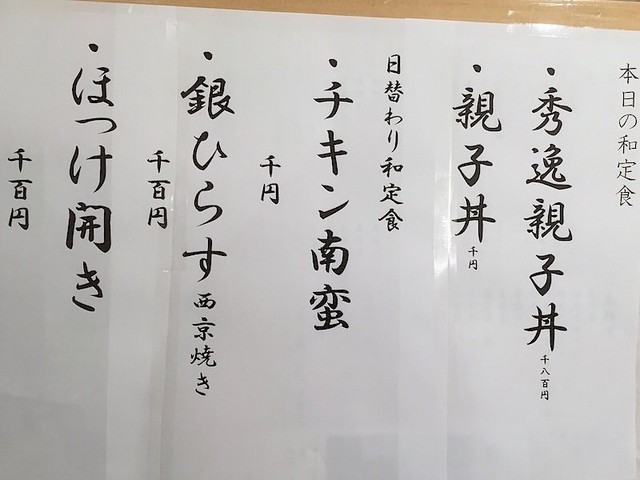 本日の和定食
・秀逸親子丼 千八百円
・親子丼 千円
日替わり和定食
・チキン南蛮
千円
・銀ひらす西京焼き
千百円
・ほっけ開き
千百円